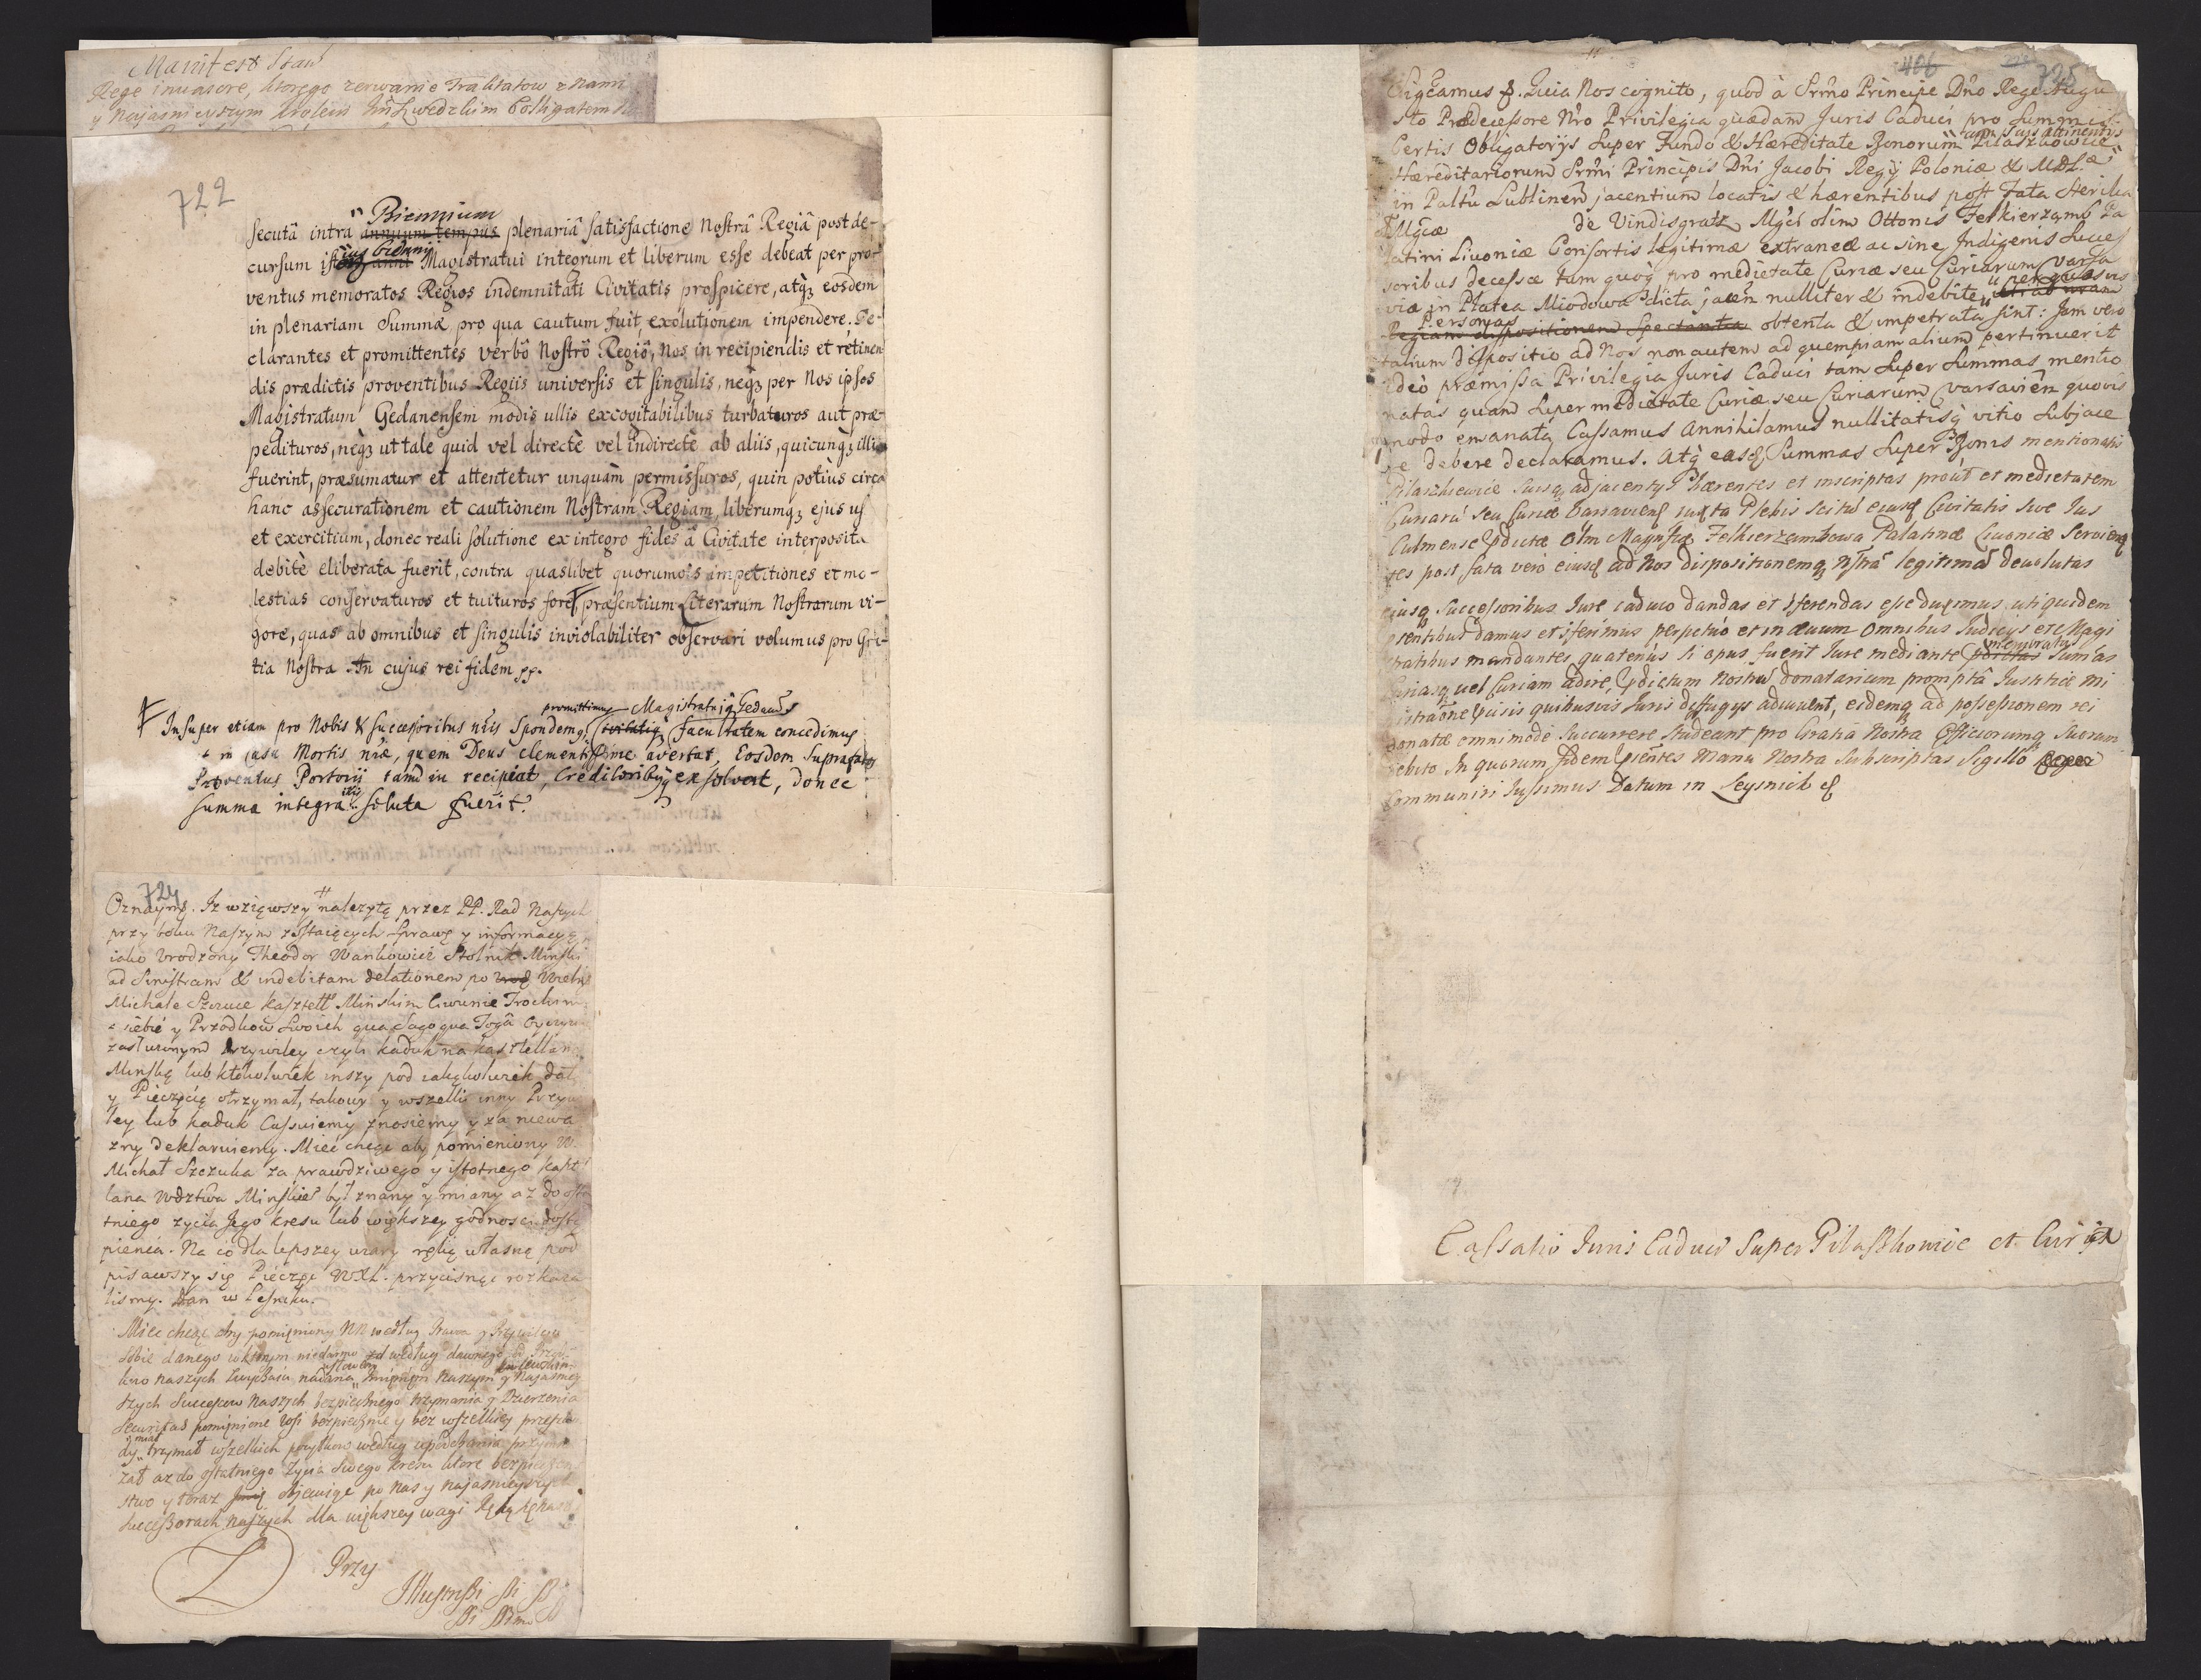 Manifest Stan
Rege invasore, ktorego zerwanie Traktatow z nami
y Nayjasnieyszym Krolem Szwedzkim
722
Biennium
secutâ intra annuum tempus plenariâ satisfactione Nostrâ Regiâ post de-
cursum Magistratui integrum et liberum esse debeat per pro-
ventus memoratos Regios indemnitati Civitatis prospicere, atqz eosdem
in plenariam Summæ pro qua cautum fuit, exolutionem impendere. De-
clarantes et promittentes verbô Nostrô Regiô, Nos in recipiendis et retinen
dis prædictis proventibus Regiis universis et singulis, neqz per Nos ipsos
Magistratum Gedanensem modis ullis excogitabilibus turbaturos aut præ-
pedituros, neqz ut tale quid vel directè vel indirectè ab aliis, quicunqz illi
fuerint, præsumatur et attentetur unquàm permissuros, quin potiùs circa
hanc assecurationem et cautionem Nostram Regiam, liberumqz ejus us
et exercitium, donec reali solutione ex integro fides â Civitate interposita
debitè eliberata fuerit, contra quaslibet quorumvis impetitiones et mo-
lestias conservaturos et tuituros fore, præsentium Literarum Nostrarum vi-
gore, quas ab omnibus et singulis inviolabiliter observari volumus pro Gra-
tia Nostra In cujus rei fidem pp.
promittimus Magistratuiq Gedan
Insuper etiam pro Nobis & Successoribus nris Spondemq, Civitatiq facultatem concedimus
in casu Mortis nræ, quem Deus clementissime avertat, Eosdem Suprafatos
Proventus Portorii tamdiu recipiat, Creditoribusq exsolvat, donec
summa integra illis soluta fuerit.
724
Oznaymu. Iz wziąwszy należytą przez PP. Rad Naszych
przy boku Naszym zostaiących sprawę y informacyę
iako Urodzony Theodor Wankowicz Stolnik Minski
ad Sinistram & indebitam delationem po Urod Wielm
Michale Szczuce Kasztell Minskim Ciwunie Trockim
z siebie y Przodkow Swoich qua Sago qua Togâ Oyczyz
zasluzonym Przywiley czyli kaduk na Kasztellanią
Minską lub ktokolwiek inszy pod iakąkolwiek datą
y Pieczęcią otrzymał, takowy y wszelki inny Przywi
ley lub kaduk Cassuiemy znosiemy y za niewa
zny deklaruiemy. Mieć chcąc aby pomieniony W.
Michał Szczuka za prawdziwego y istotnego Kaszt
lana Wdztwa Minskie był znany y miany az do osta
tniego zycia Jego kresu lub większey godnosci dostą
pienia. Na co dla lepszey wiary ręką własną pod
pisawszy się Pieczęć WXL. przycisnąc rozkaza
lismy. Dan w Lesniku.
Mieć chcąc aby pomieniony NN według Prawa y Przywileiu
sobie danego w ktorym według dawnego
kow naszych nadana Naszym y Najasniey
szych Successorow Naszych bezpiecznego trzymania y Dzierzenia
securitas pomienione bezpiecznie y bez wszelkiey przeszko
dy miał trzymał wszelkich pozytkow według upodobania
zał az do ostatniego zycia swego kresu ktore bezpieczen
stwo y teraz objawiąc po Nas y najasnieyszych
Successorach Naszych dla większey wagi Ręką
Przy
406
725
Signamus Quia Nos cognito, quod à Srmo Principe Dno Rege Augu
sto Prædecessore Nro Privilegia quædam Juris Caduci pro Summis
cum suis attinentys
Certis Obligatorys Super Fundo & Hæreditate Bonorum Pilaszkowice
Hæreditariorum Srmi Principis Dni Jacobi Regy Poloniæ & MDL
in Paltu Lublinen jacentium locatis & hærentibus post Fata Sterilia
Mgcæ de Vindisgratz Mgci olim Ottonis Felkierzamb Pa
latini Livoniæ Consortis legitimæ extraneæ ac sine Indigenis Succes
soribus decessæ tam quoq pro medietate Curiæ seu Curiarum Varsa
viæ in Platea Miodowa dicta jacen nulliter & indebite per quasvis
Personas
Regiam dispositionem Spectantia obtenta & impetrata sint: Jam vero
talium dispositio ad Nos non autem ad quempiam alium pertinuerit
ideò præmissa Privilegia Juris Caduci tam Super Summas mentio
natas quam Super medietate Curiæ seu Curiarum Varsavien quovis
modo emanata Cassamus Annihilamus nullitatisq vitio Subjace
re debere declaramus. Atq easq Summas Super Bonis mentionatis
Pilaszkowice suisq adjacentys hærentes et inscriptas prout et medietatem
Curiarū seu Curiæ Varsaviens iuxta Plebis scitū eiusq Civitatis sive Jus
Culmense dictæ olim Magnificæ Felkierzambowa Palatinæ Livoniæ Servien
tes post fata vero eiusq ad Nos dispositionemq nstrā legitime devolutas
eiusq Successoribus Jure caduco dandas et conferendas esse duximus, uti quidem
præsentibus damus et conferimus perpetuò et in ævum Omnibus Judicys et Magi
stratibus mandantes quatenus si opus fuerit Jure mediante memoratas Sumas
Curiasq vel Curiam adire, dictum Nostrū donatarium promptâ Justitiæ mi
nistratione quibusvis Juris diffugys adiuvent, eidemq ad possessionem rei
donatæ omnimodè Succurrere Studeant pro Gratia Nostra Officiorumq Suorum
debito In quorum fidem præsentes Manu Nostra Subscriptas Sigillo Regni
Communiri Jussimus Datum in Leysnick
Cassatio Juris Caduci Super Pilaszkowice et Curia